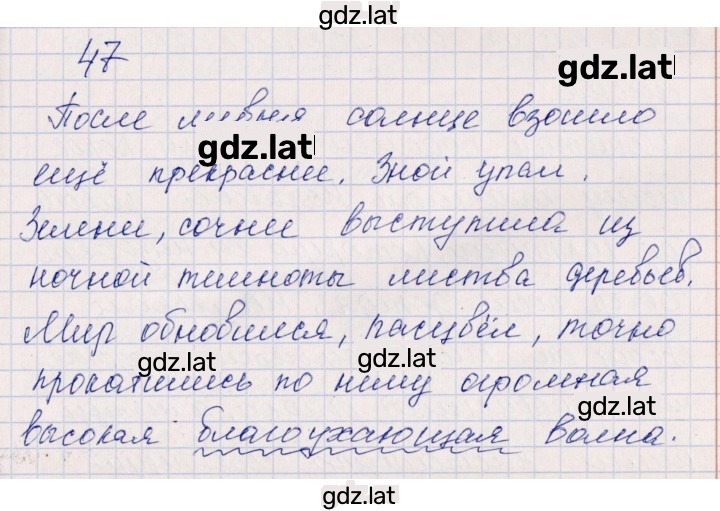 gdz.lat
47
gdz.lat
После ливня солнце взошло
gdz.lat
ещё прекраснее. Зной упал.
Зеленее, сочнее выступила из
ночной темноты листва деревьев.
Мир обновился, расцвёл, точно
gdz.lat gdz.lat
прокатилась по нему огромная
gdz.lat
высокая благоухающая волна.
gdz.lat